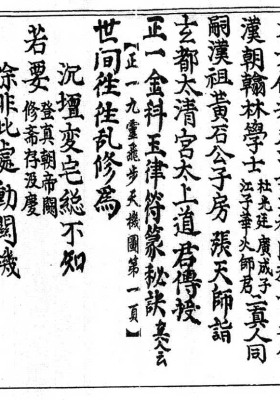 漢朝翰林學士
杜光廷廣成子
江子華火師君
二真人同
嗣漢祖黃石公子房 張天師詣
玄都太清宮太上道君傳授
正一金科玉律符篆秘訣 云
【正一九靈飛步天機圖第一頁】
世间徃徃乱修為
沉壇変宅総不知
若要
登真朝帝闕
修斋存没慶
除非此處動関機